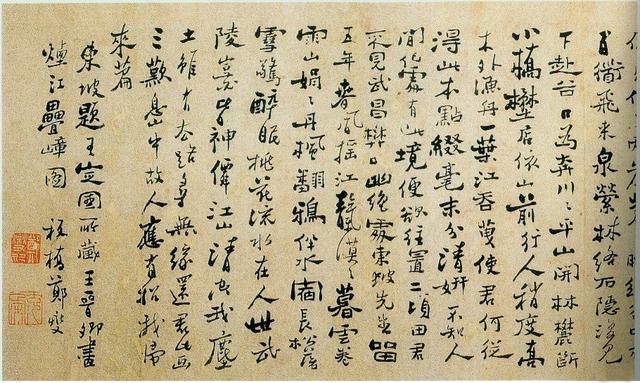 百衜飛来泉縈林絡石隱復見
下赴谷口為奔川々平山開林麓斷
小橋壄店依山前行人稍度喬
木外漁舟一葉江吞天使君何從
得此本點綴毫末分清妍不知人
間何處有此境便欲往置二頃田君
不見武昌樊口幽絕處東坡先生留
五年春風搖江天漠々暮雲卷
雨山娟々丹楓翻鴉伴水宿長松落
雪驚醉眠桃花流水在人世武
陵豈皆神僊江山清空我塵
土雖有去路尋無緣還君此畫
三歎息山中故人應有招我歸
來篇
東坡題王定國所藏王晉卿畫
煙江疊嶂圖 板橋鄭燮